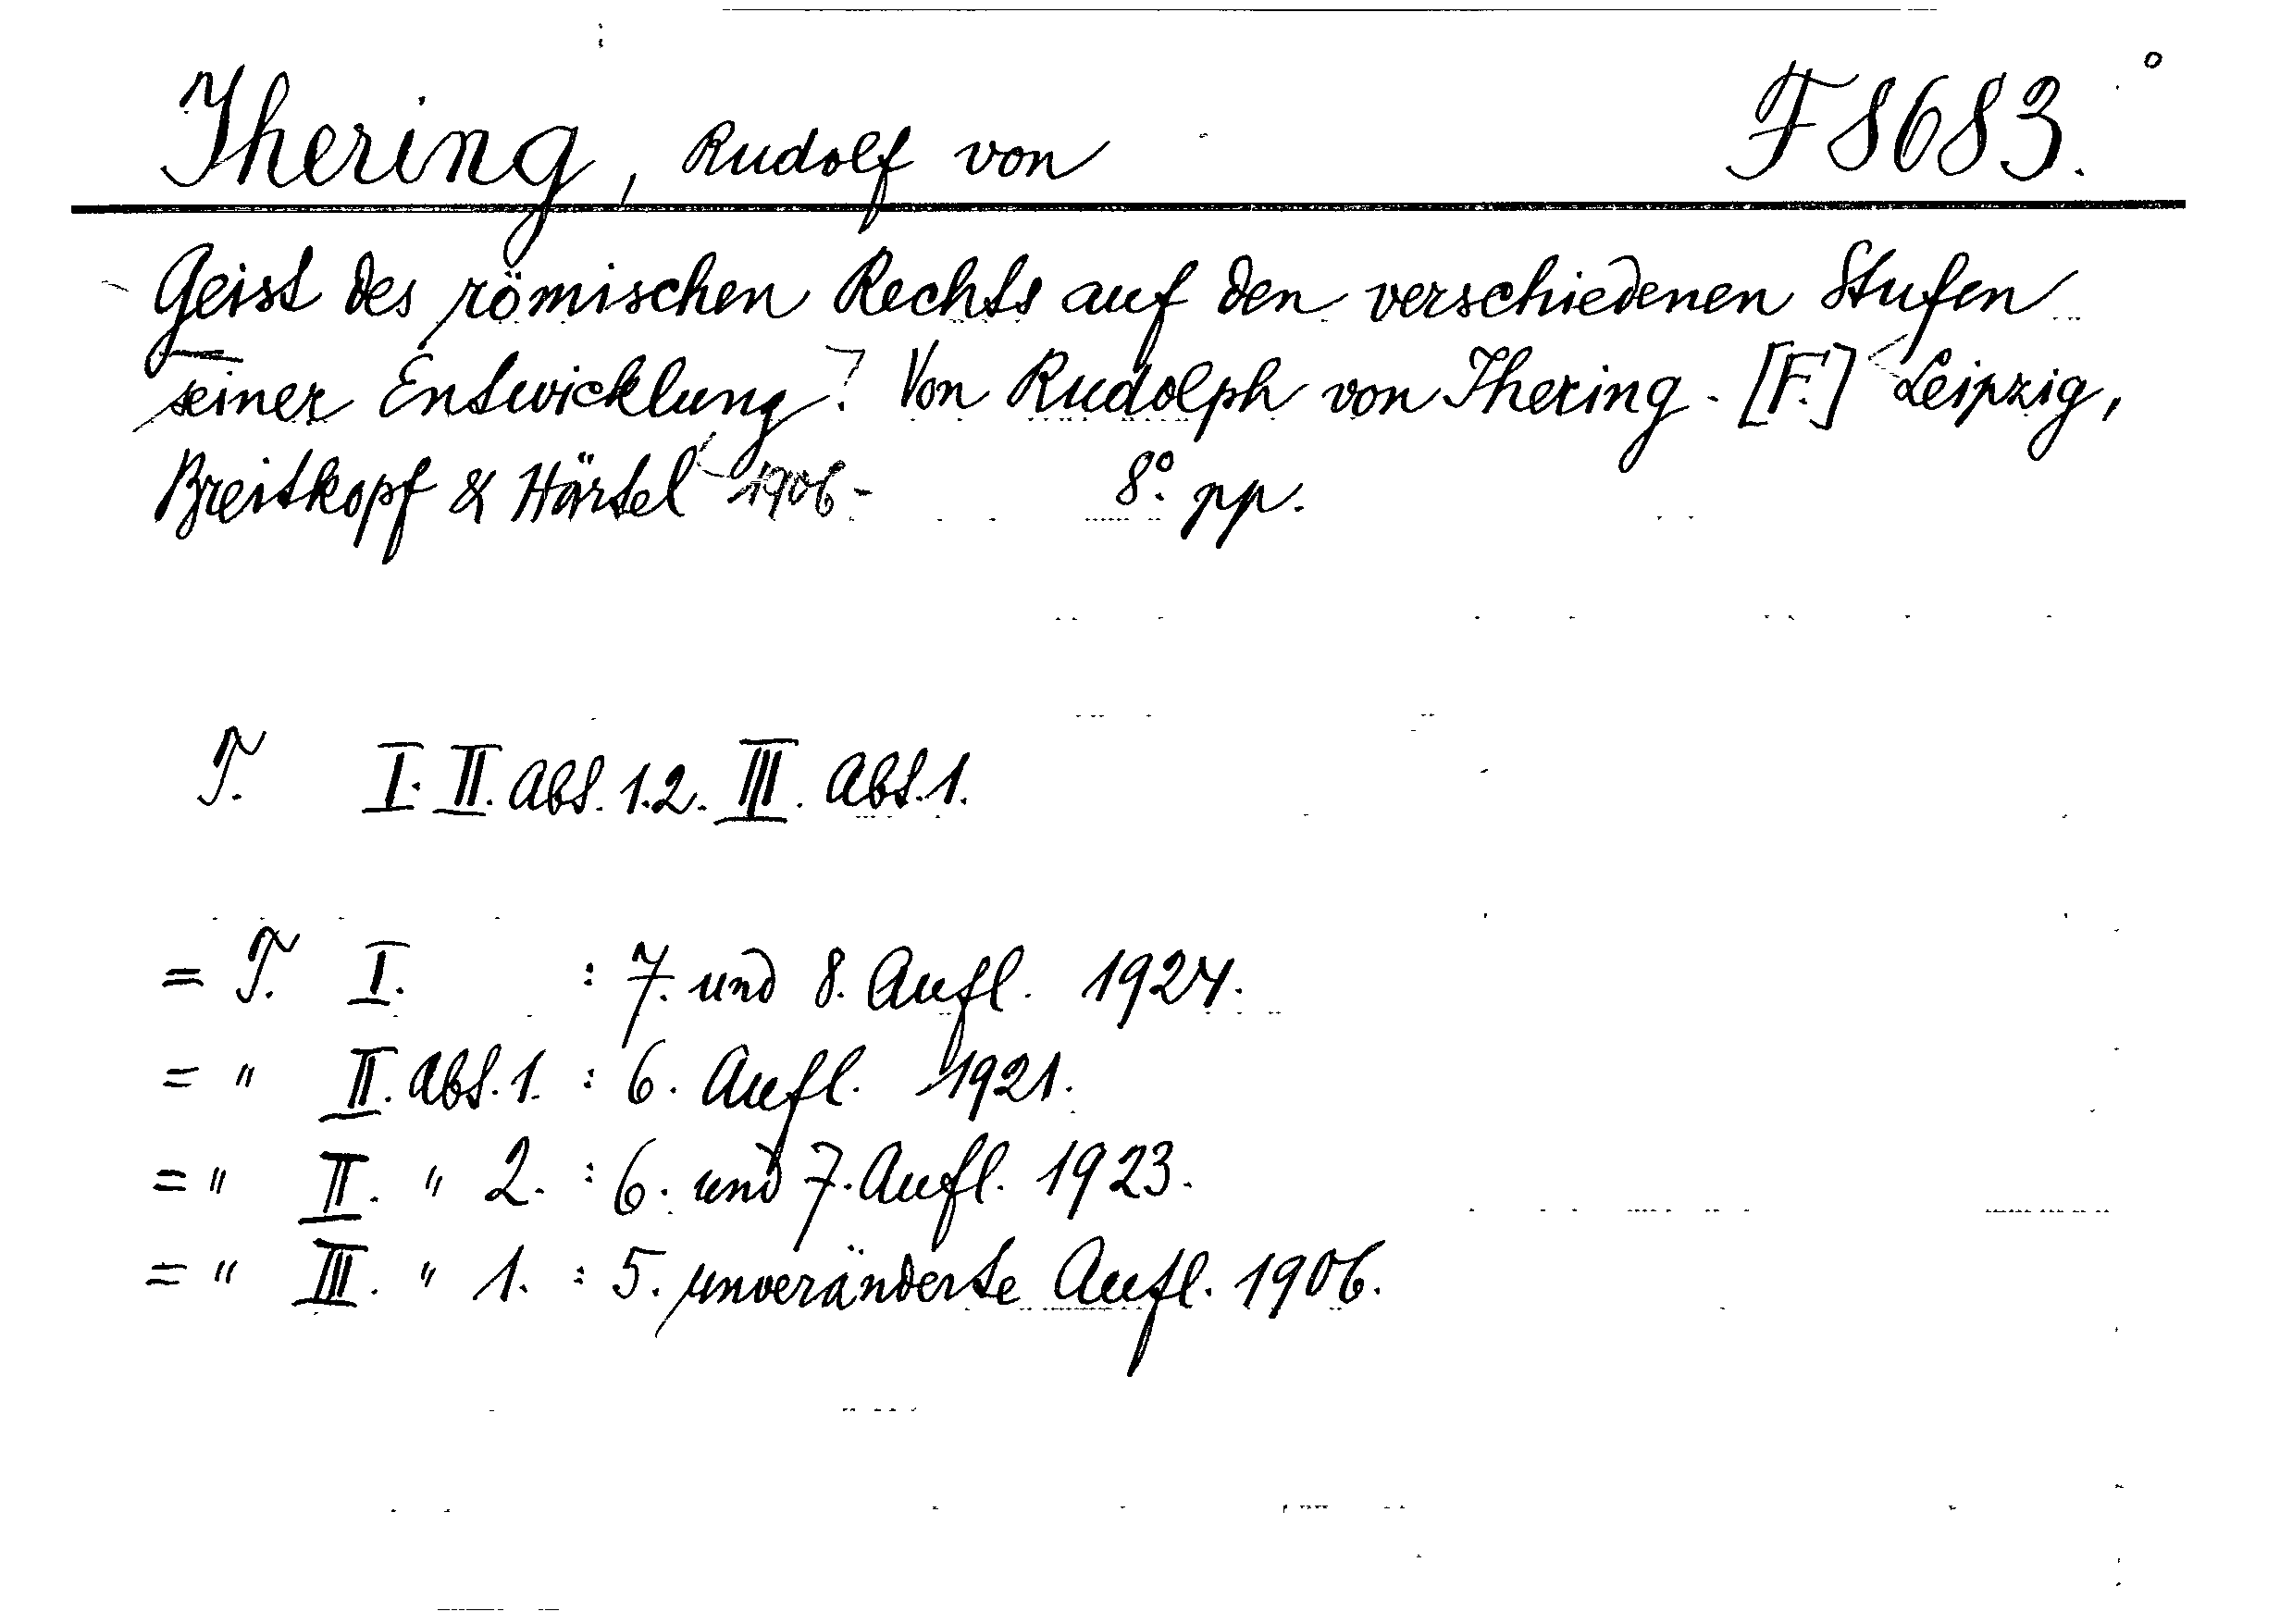 Ihering, Rudolf von F 8683.
Geist des römischen Rechts auf den verschiedenen Stufen
seiner Entwicklung. Von Rudolph von Ihering. [F.] Leipzig,
Breitkopf & Härtel 1906- 8°. pp.
T. I. II. Abt. 1.2. III. Abt. 1.
= T. I. : 7. und 8. Aufl. 1924.
= " II. Abt. 1. : 6. Aufl. 1921.
= " II. " 2. : 6. und 7. Aufl. 1923.
= " III. " 1. : 5. unveränderte Aufl. 1906.